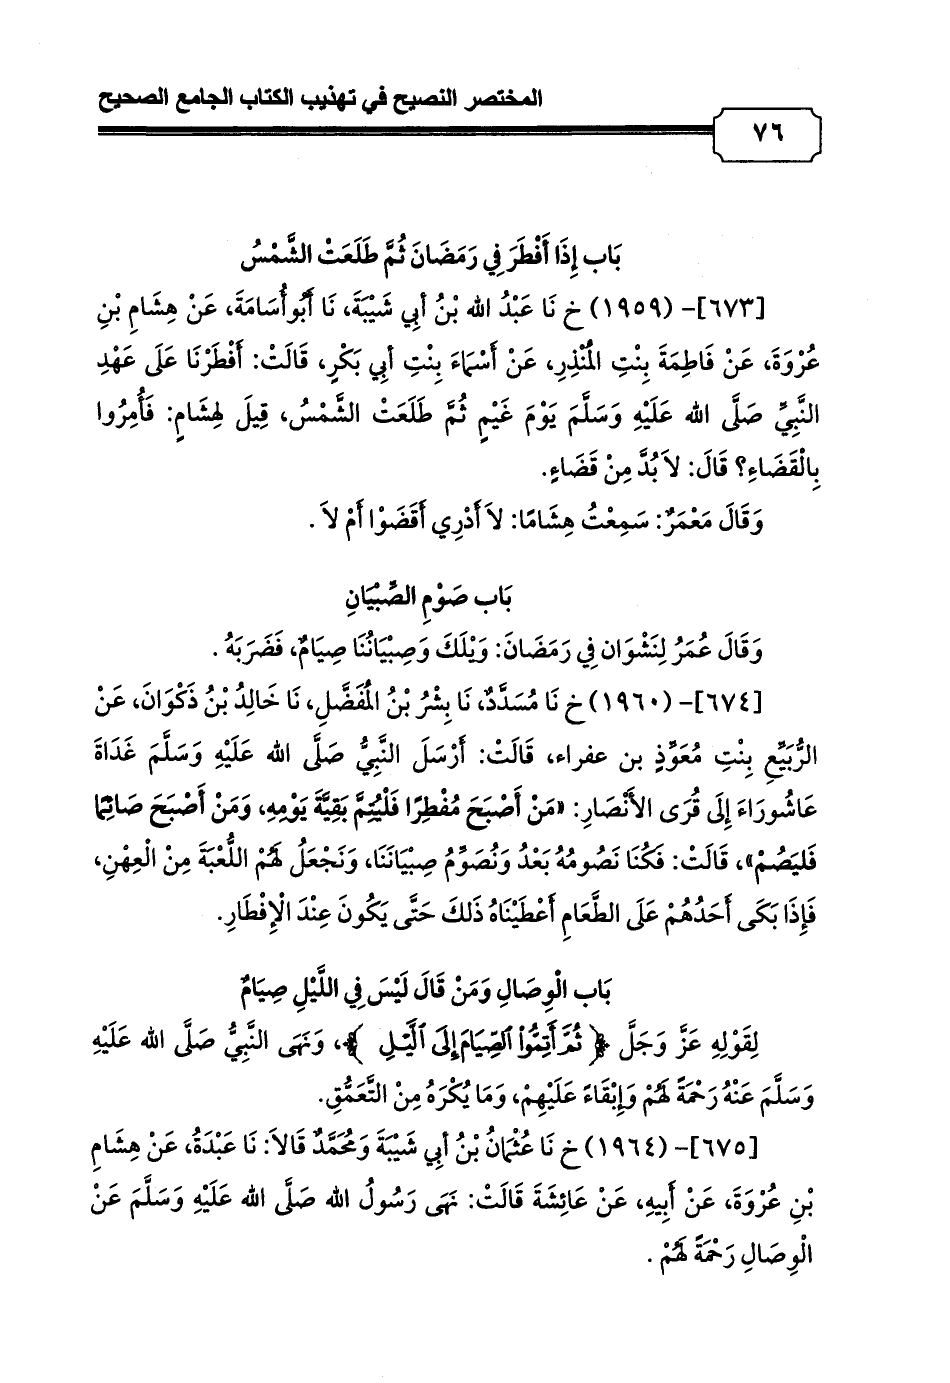 المختصر النصيح في تهذيب الكتاب الجامع الصحيح
٧٦
بَاب إِذَا أَفْطَرَ فِي رَمَضَانَ ثُمَّ طَلَعَتْ الشَّمْسُ
[٦٧٣]- (١٩٥٩) خ نَا عَبْدُ الله بْنُ أبِي شَيْبَةَ، نَا أَبُو أُسَامَةَ، عَنْ هِشَامِ بْنِ
عُرْوَةَ، عَنْ فَاطِمَةَ بِنْتِ المُنْذِرِ، عَنْ أَسْمَاءَ بِنْتِ أبِي بَكْرٍ، قَالَتْ: أَفْطَرْنَا عَلَى عَهْدِ
النَّبِيِّ صَلَّى الله عَلَيْهِ وَسَلَّمَ يَوْمَ غَيْمٍ ثُمَّ طَلَعَتْ الشَّمْسُ، قِيلَ لِهِشَامٍ: فَأُمِرُوا
بِالْقَضَاءِ؟ قَالَ: لاَ بُدَّ مِنْ قَضَاءٍ.
وَقَالَ مَعْمَرٌ: سَمِعْتُ هِشَامًا: لاَ أَدْرِي أَقَضَوْا أَمْ لاَ .
بَاب صَوْمِ الصِّبْيَانِ
وَقَالَ عُمَرُ لِنَشْوَان فِي رَمَضَانَ: وَيْلَكَ وَصِبْيَانُنَا صِيَامٌ، فَضَرَبَهُ .
[٦٧٤]- (١٩٦٠) خ نَا مُسَدَّدٌ، نَا بِشْرُ بْنُ المُفَضَّلِ، نَا خَالِدُ بْنُ ذَكْوَانَ، عَنْ
الرُّبَيِّعِ بِنْتِ مُعَوِّذٍ بن عفراء، قَالَتْ: أَرْسَلَ النَّبِيُّ صَلَّى الله عَلَيْهِ وَسَلَّمَ غَدَاةَ
عَاشُورَاءَ إِلَى قُرَى الأَنْصَارِ: «مَنْ أَصْبَحَ مُفْطِرًا فَلْيُتِمَّ بَقِيَّةَ يَوْمِهِ، وَمَنْ أَصْبَحَ صَائِمًا
فَليَصُمْ»، قَالَتْ: فَكُنَا نَصُومُهُ بَعْدُ وَنُصَوِّمُ صِبْيَانَنَا، وَنَجْعَلُ لَهُمْ اللُّعْبَةَ مِنْ الْعِهْنِ،
فَإِذَا بَكَى أَحَدُهُمْ عَلَى الطَّعَامِ أَعْطَيْنَاهُ ذَلكَ حَتَّى يَكُونَ عِنْدَ الْإِفْطَارِ.
بَاب الْوِصَالِ وَمَنْ قَالَ لَيْسَ فِي اللَّيْلِ صِيَامٌ
لِقَوْلِهِ عَزَّ وَجَلَّ ﴿ ثُمَّ أَتِمُّوا۟ ٱلصِّيَامَ إِلَى ٱلَّيْلِ ﴾، وَنَهَى النَّبِيُّ صَلَّى الله عَلَيْهِ
وَسَلَّمَ عَنْهُ رَحْمَةً لَهُمْ وَإِبْقَاءً عَلَيْهِمْ، وَمَا يُكْرَهُ مِنْ التَّعَمُّقِ.
[٦٧٥]- (١٩٦٤) خ نَا عُثْمَانُ بْنُ أبِي شَيْبَةَ وَمُحَمَّدٌ قَالاَ: نَا عَبْدَةُ، عَنْ هِشَامِ
بْنِ عُرْوَةَ، عَنْ أَبِيهِ، عَنْ عَائِشَةَ قَالَتْ: نَهَى رَسُولُ الله صَلَّى الله عَلَيْهِ وَسَلَّمَ عَنْ
الْوِصَالِ رَحْمَةً لَهُمْ .